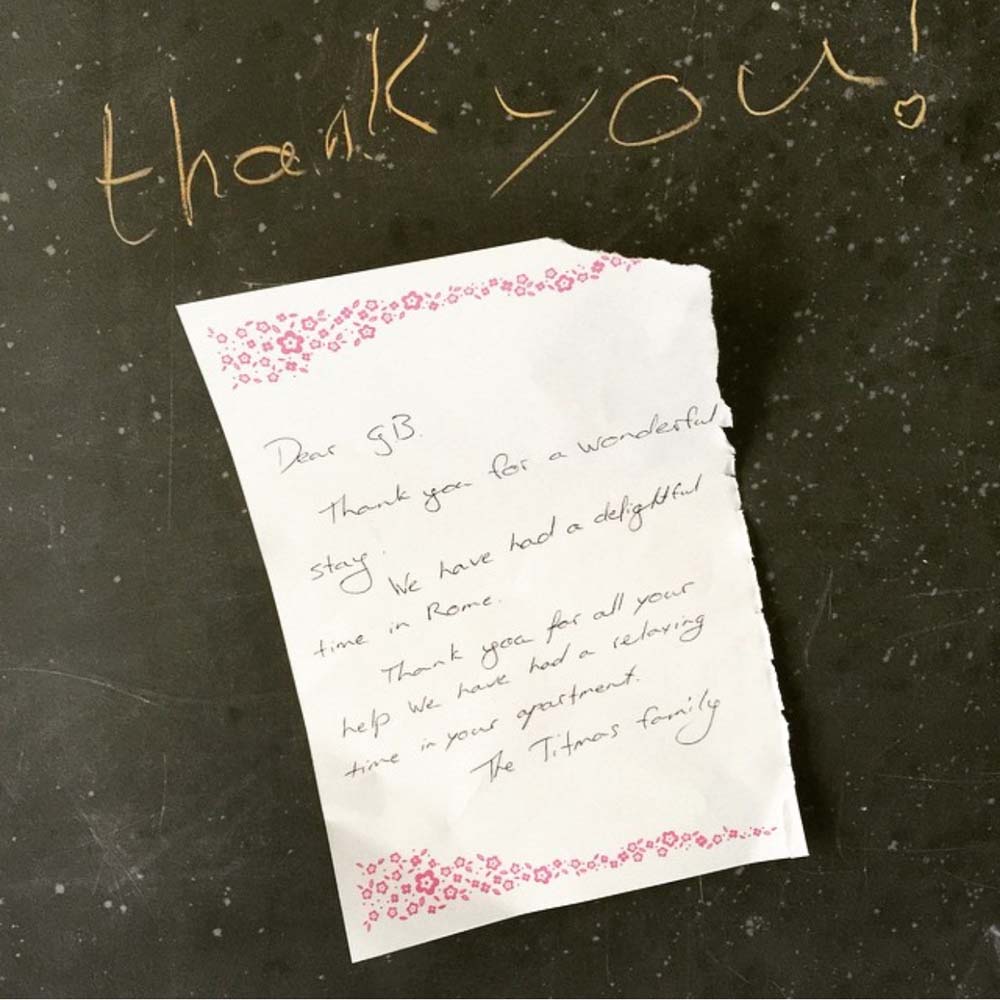 thank you!
Dear GB.
Thank you for a wonderful
stay.
We have had a delightful
time in Rome.
Thank you for all your
help We have had a relaxing
time in your apartment.
The Titmas family